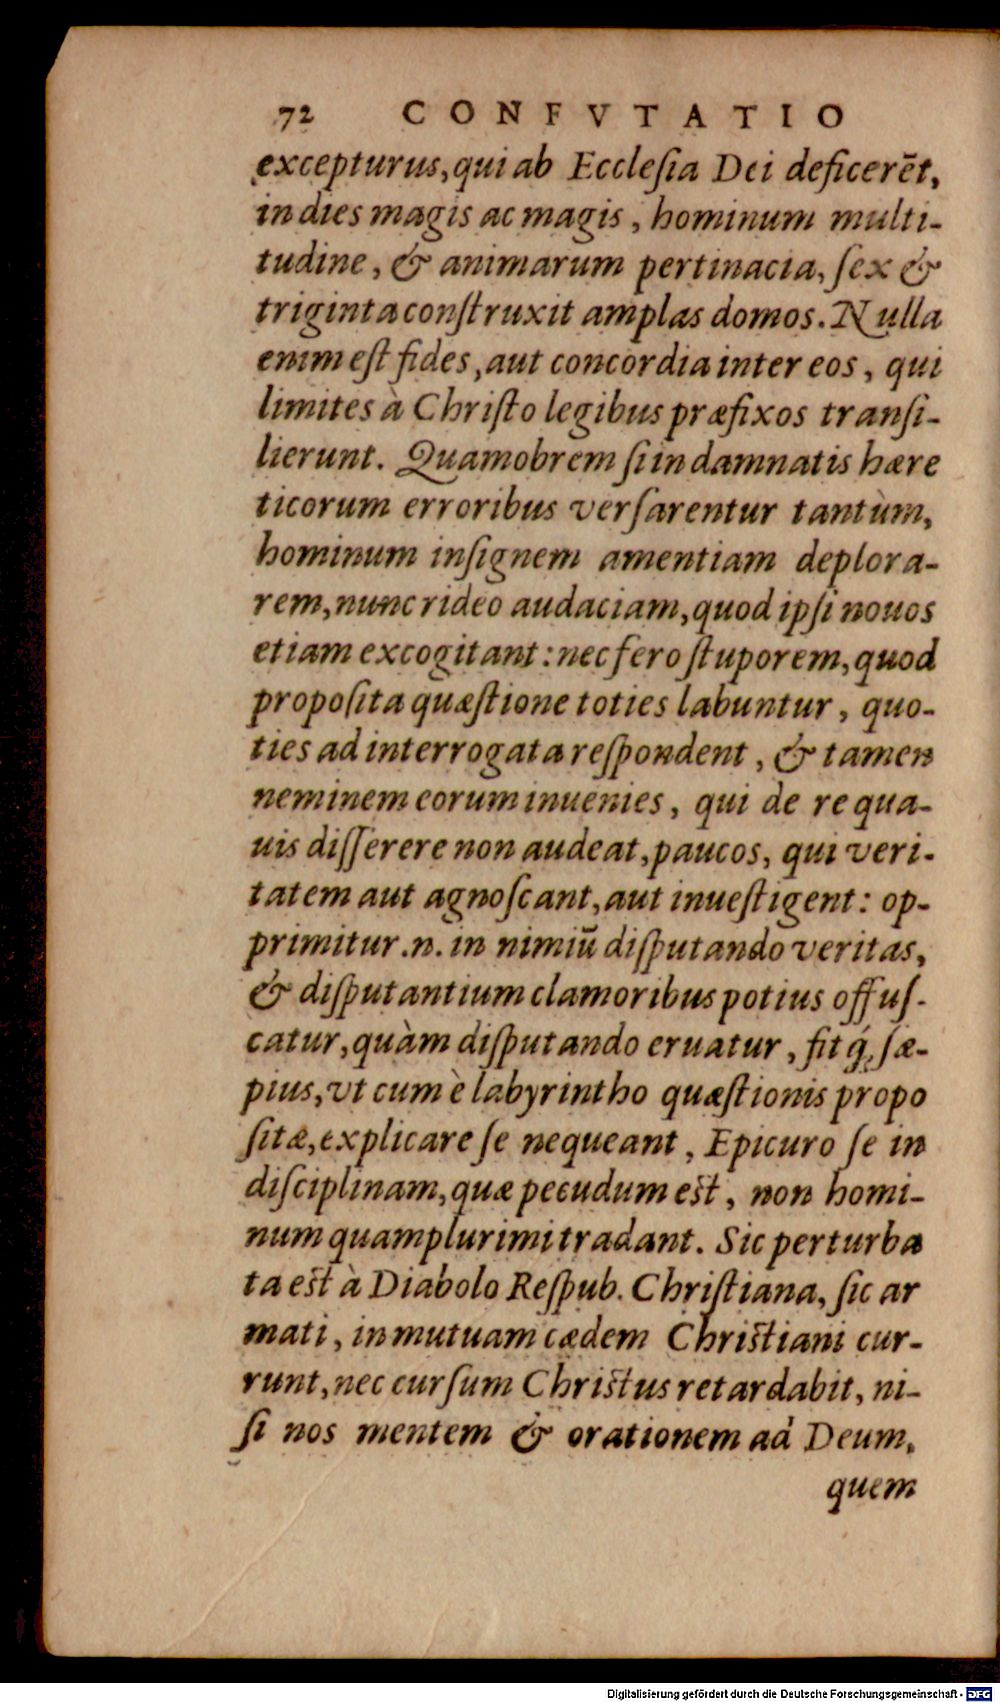 72 CONFVTATIO
excepturus, qui ab Ecclesia Dei deficerẽt,
in dies magis ac magis, hominum multi-
tudine, & animarum pertinacia, sex &
triginta construxit amplas domos. Nulla
enim est fides, aut concordia inter eos, qui
limites à Christo legibus præfixos transi-
lierunt. Quamobrem si in damnatis hære
ticorum erroribus versarentur tantùm,
hominum insignem amentiam deplora-
rem, nunc rideo audaciam, quod ipsi nouos
etiam excogitant: nec fero stuporem, quod
proposita quæstione toties labuntur, quo-
ties ad interrogata respondent, & tamen
neminem eorum inuenies, qui de re qua-
uis disserere non audeat, paucos, qui veri-
tatem aut agnoscant, aut inuestigent: op-
primitur .n. in nimiũ disputando veritas,
& disputantium clamoribus potius offus-
catur, quàm disputando eruatur, fit q́; sæ-
pius, vt cum è labyrintho quæstionis propo
sitæ, explicare se nequeant, Epicuro se in
disciplinam, quæ pecudum est, non homi-
num quamplurimi tradant. Sic perturba
ta est à Diabolo Respub. Christiana, sic ar
mati, in mutuam cædem Christiani cur-
runt, nec cursum Christus retardabit, ni-
si nos mentem & orationem ad Deum,
quem
Digitalisierung gefördert durch die Deutsche Forschungsgemeinschaft - DFG